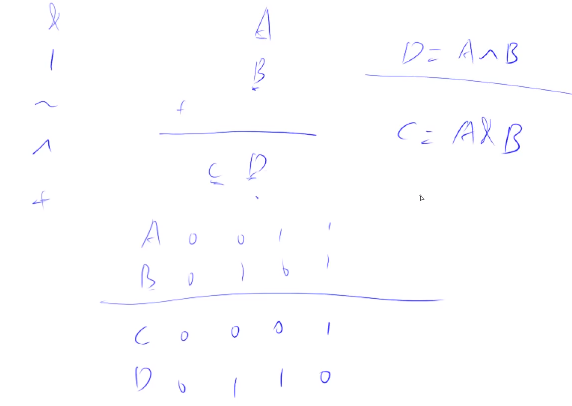 &
|
~
^
+
A
B
+
C D
D = A ^ B
C = A & B
A 0 0 1 1
B 0 1 0 1
C 0 0 0 1
D 0 1 1 0